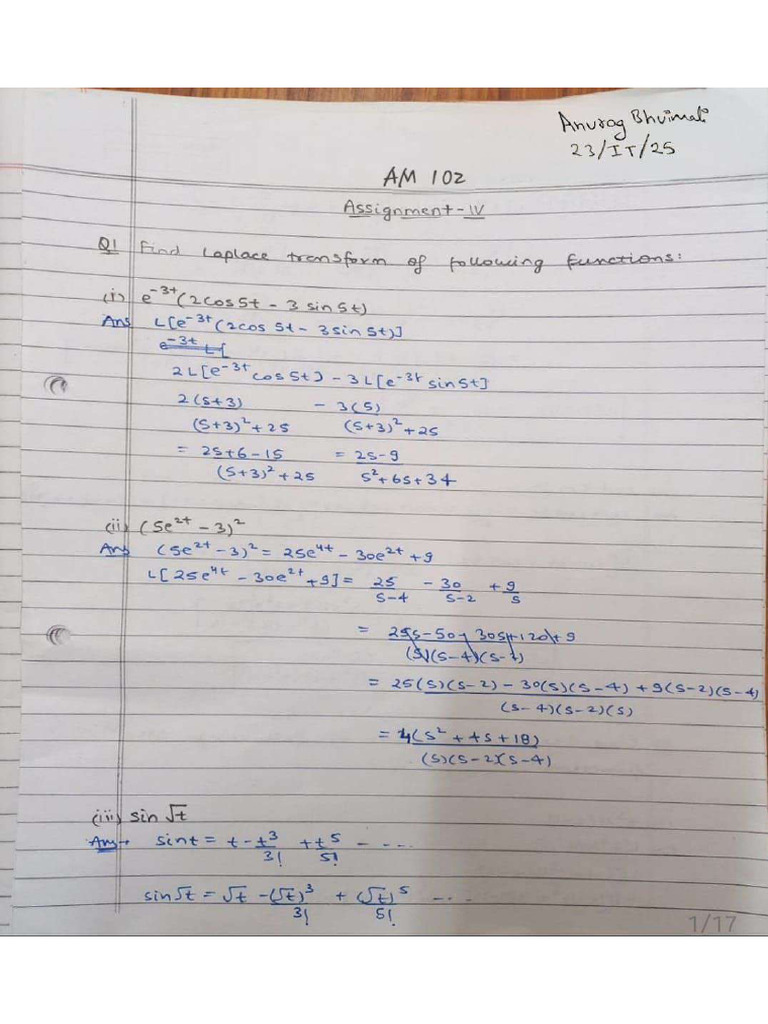 Anurag Bhuimali
23/IT/25
AM 102
Assignment-IV
Q1 Find Laplace transform of following functions:
(i) e^-3t (2cos5t - 3 sin5t)
Ans L[e^-3t (2cos 5t - 3sin 5t)]
e^-3t L[
2L[e^-3t cos5t] - 3L[e^-3t sin5t]
2(s+3) - 3(5)
(s+3)^2+25 (s+3)^2+25
= 2s+6-15 = 2s-9
(s+3)^2+25 s^2+6s+34
(ii) (5e^2t - 3)^2
Ans (5e^2t - 3)^2 = 25e^4t - 30e^2t + 9
L[25e^4t - 30e^2t + 9] = 25 - 30 + 9
s-4 s-2 s
= 25s-50-30s+120+9
(s)(s-4)(s-2)
= 25(s)(s-2) - 30(s)(s-4) + 9(s-2)(s-4)
(s-4)(s-2)(s)
= 4(s^2+4s+18)
(s)(s-2)(s-4)
(iii) sin √t
Ans→ sint = t - t^3 + t^5 - ....
3! 5!
sin√t = √t - (√t)^3 + (√t)^5 ....
3! 5!
1/17